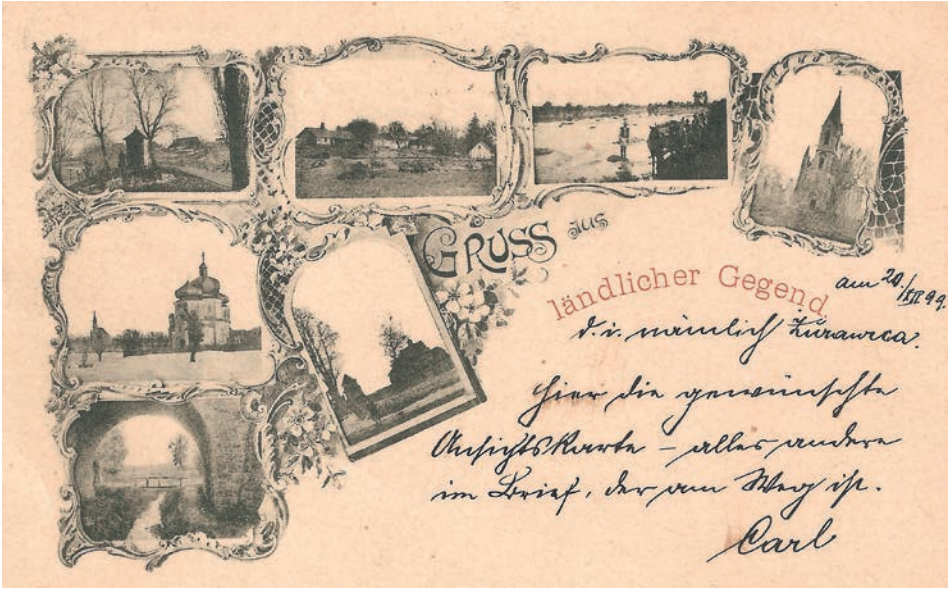 GRUSS aus
ländlicher Gegend
am 20./XII 99.
d. i. nämlich Żurawica.
Hier die gewünschte
Ansichtskarte – alles andere
im Brief, der am Weg ist.
Carl